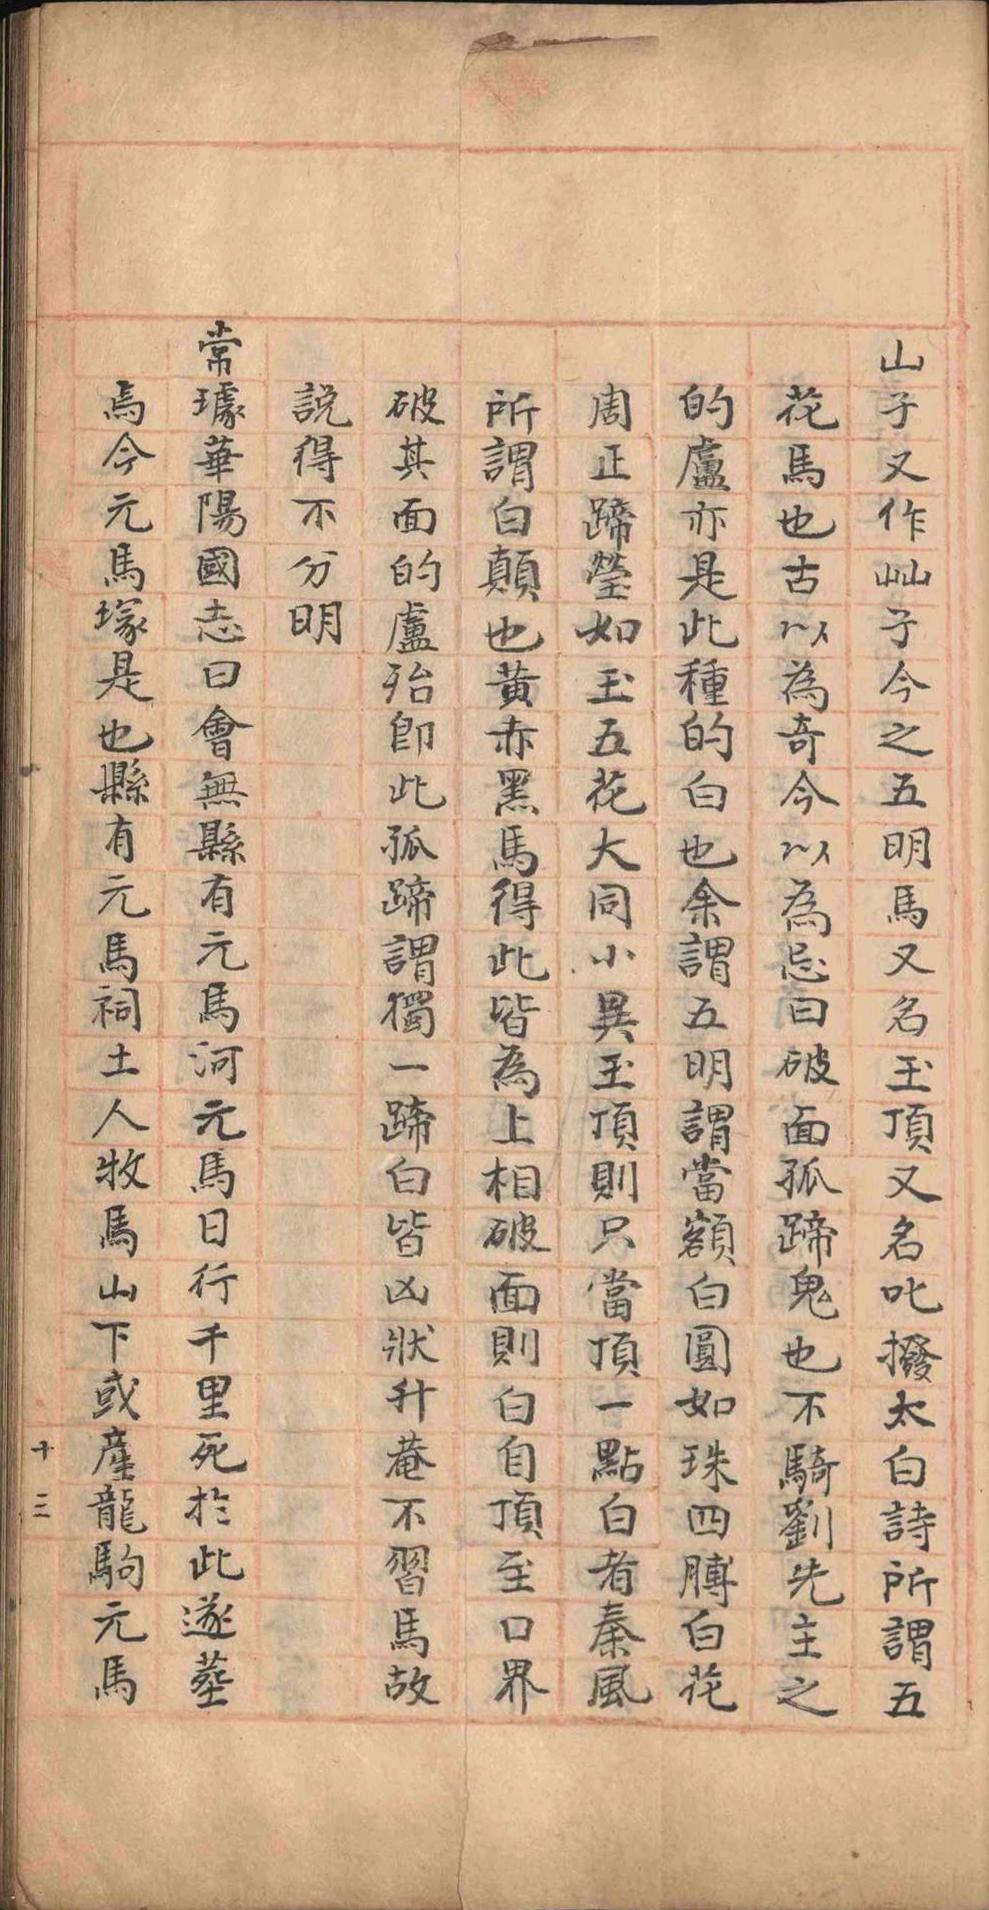 山子又作屾子今之五明馬又名玉頂又名叱撥太白詩所謂五
花馬也古以為奇今以為忌曰破面孤蹄鬼也不騎劉先主之
的盧亦是此種的白也余謂五明謂當額白圓如珠四膊白花
周正蹄瑩如玉五花大同小異玉頂則只當頂一點白者秦風
所謂白顛也黃赤黑馬得此皆為上相破面則白自頂至口界
破其面的盧殆即此孤蹄謂獨一蹄白皆凶狀升菴不習馬故
說得不分明
常璩華陽國志曰會無縣有元馬河元馬日行千里死於此遂塟
焉今元馬塚是也縣有元馬祠土人牧馬山下或產龍駒元馬
十三